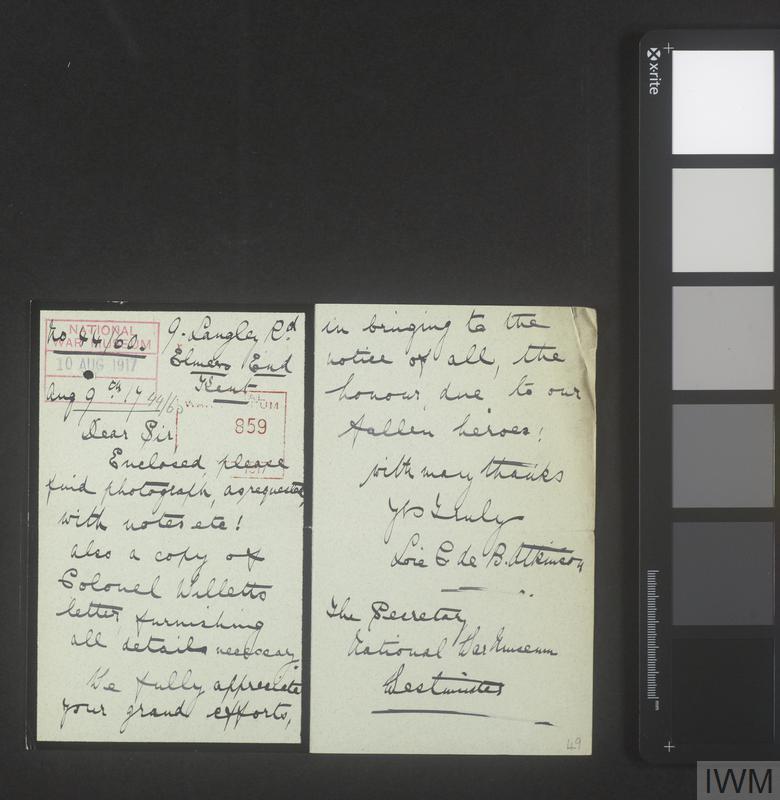 NATIONAL
WAR MUSEUM
No 84/60.
10 AUG 1917
9. Langley Rd
Elmers End
Kent
Aug 9th 17
44/65
859
1917
Dear Sir,
Enclosed please
find photograph, as requested,
with notes etc!
also a copy of
Colonel Willetts
letter, furnishing
all details necessary.
We fully appreciate
your grand efforts,
in bringing to the
notice of all, the
honour due to our
fallen heroes!
with many thanks
Yrs Truly
E de B. Atkinson
The Secretary
National War Museum
Westminster
49
x-rite
mm
IWM